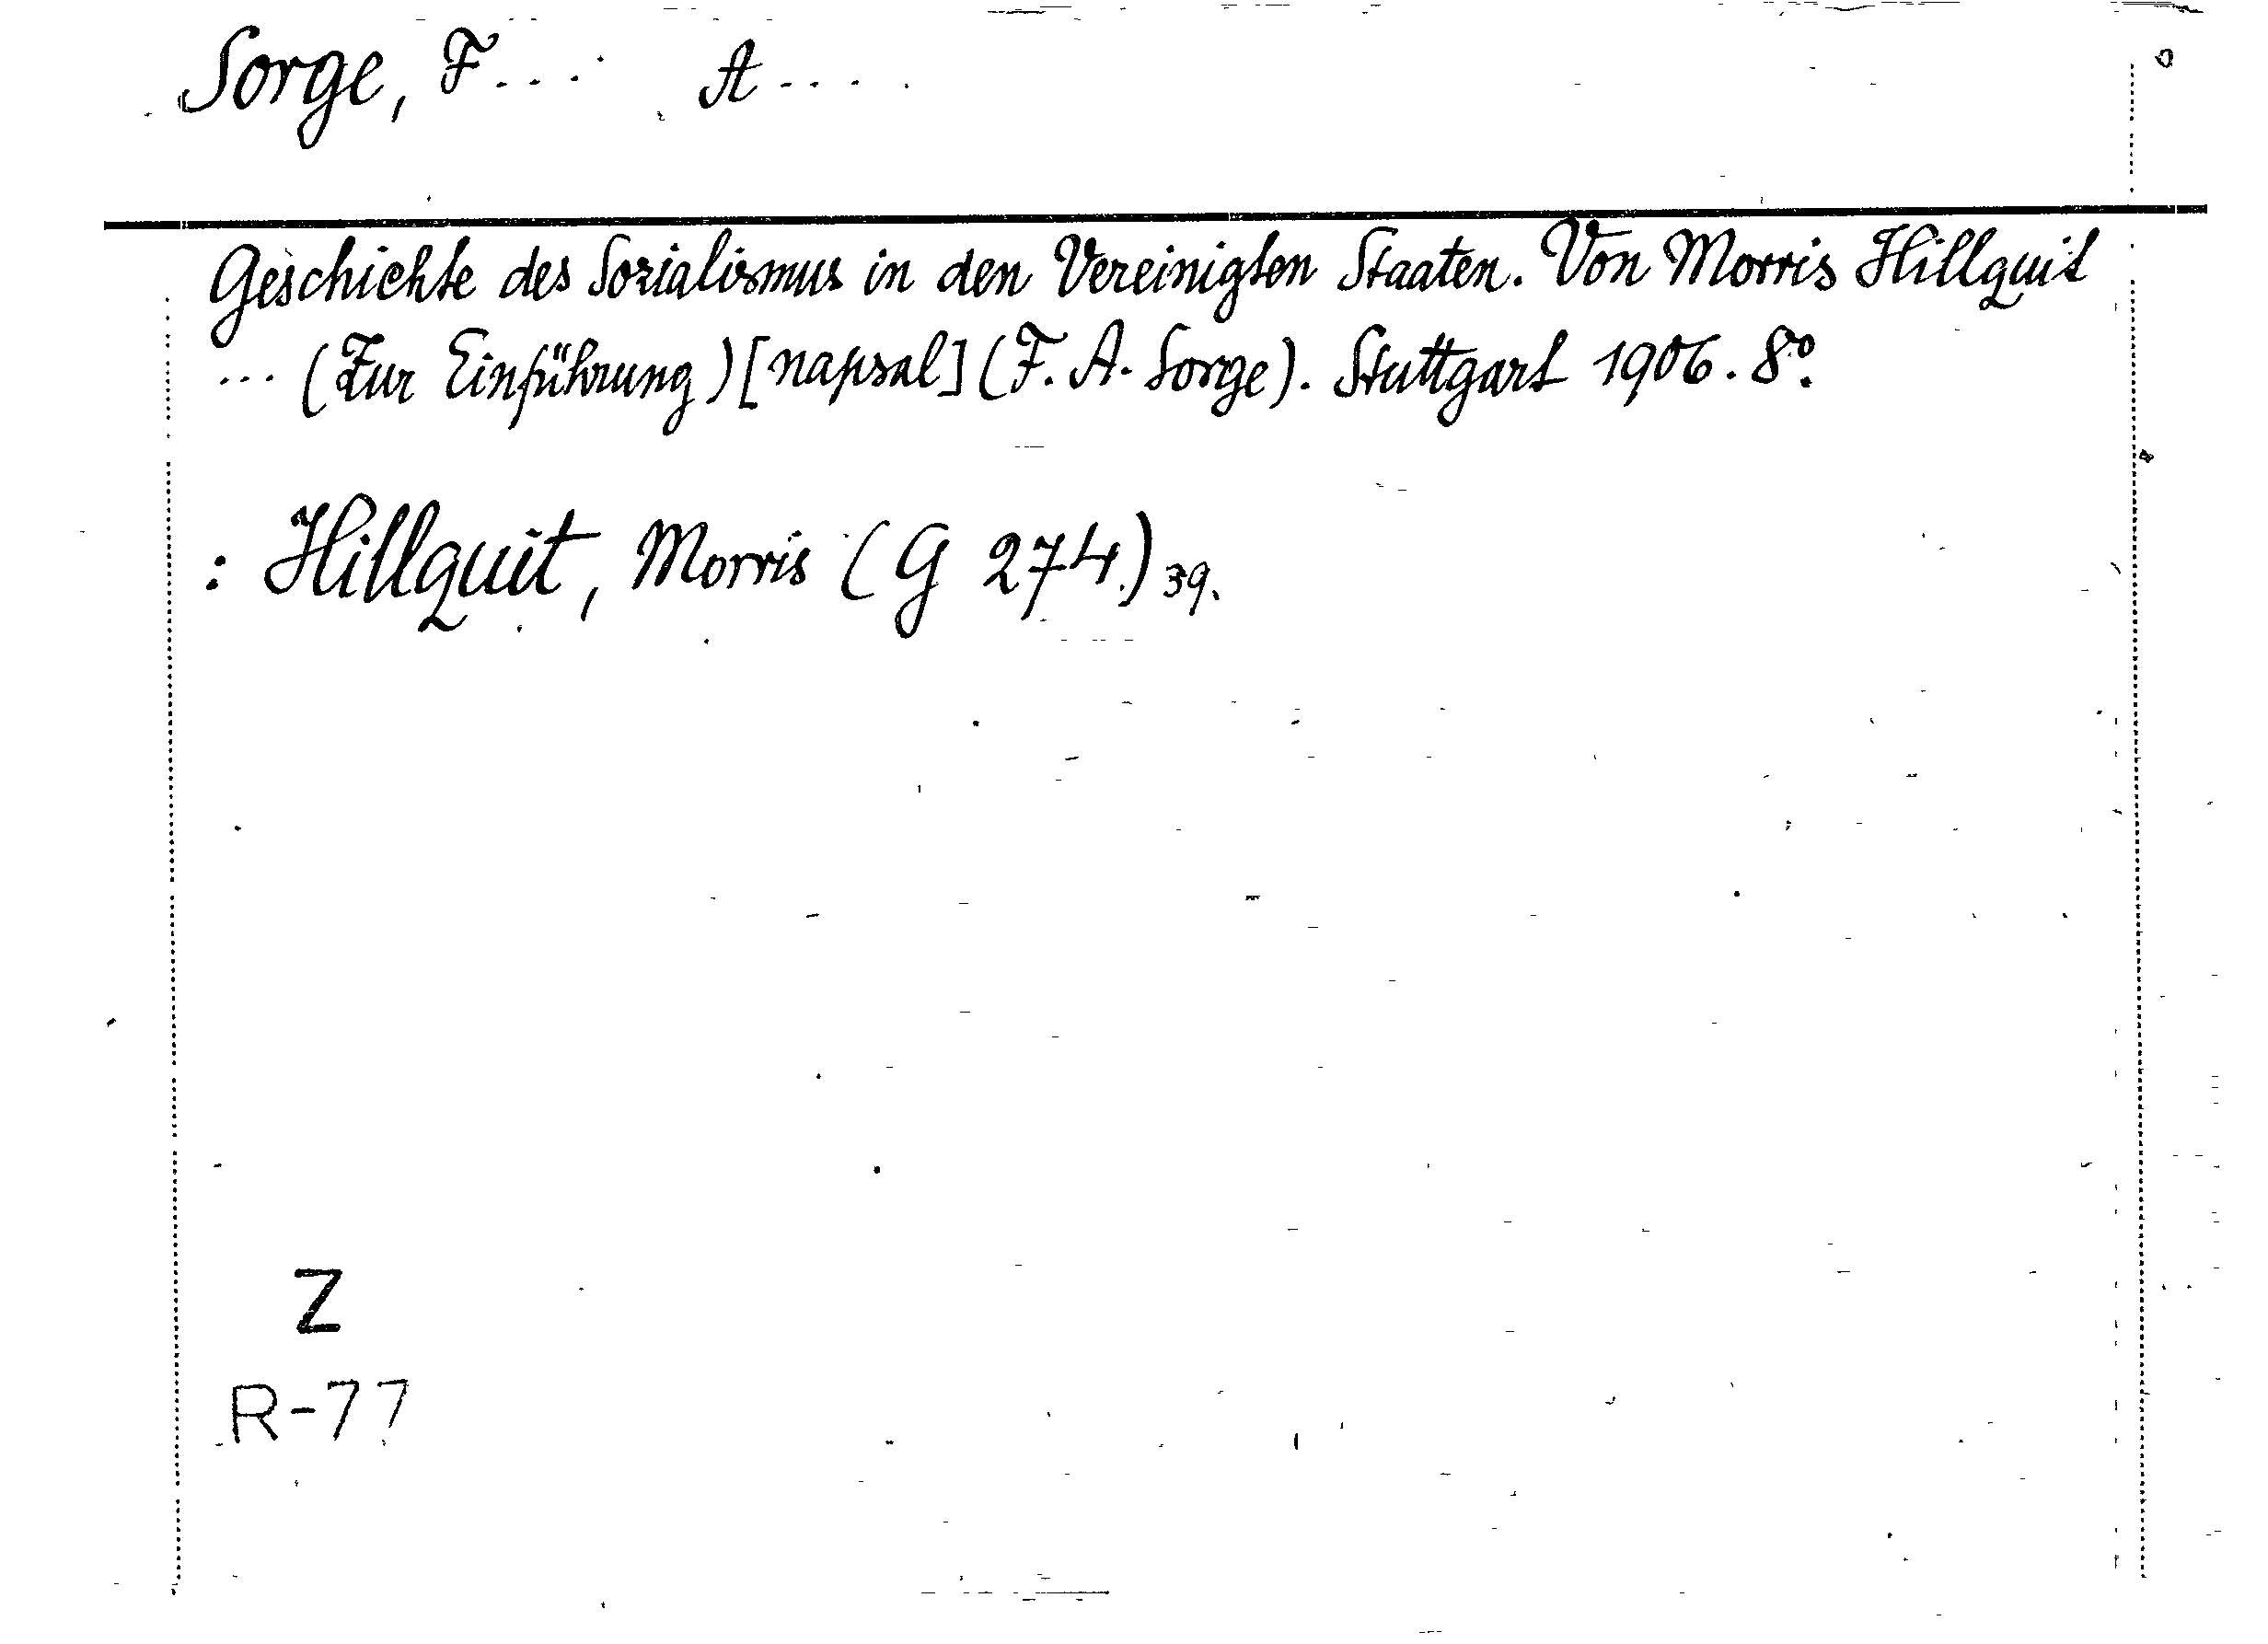 Sorge, F.... A....
Geschichte des Sozialismus in den Vereinigten Staaten. Von Morris Hillquit
... (Zur Einführung) [napsal] (F. A. Sorge). Stuttgart 1906. 8º.
: Hillquit, Morris (G 274.) 39.
Z
R-77